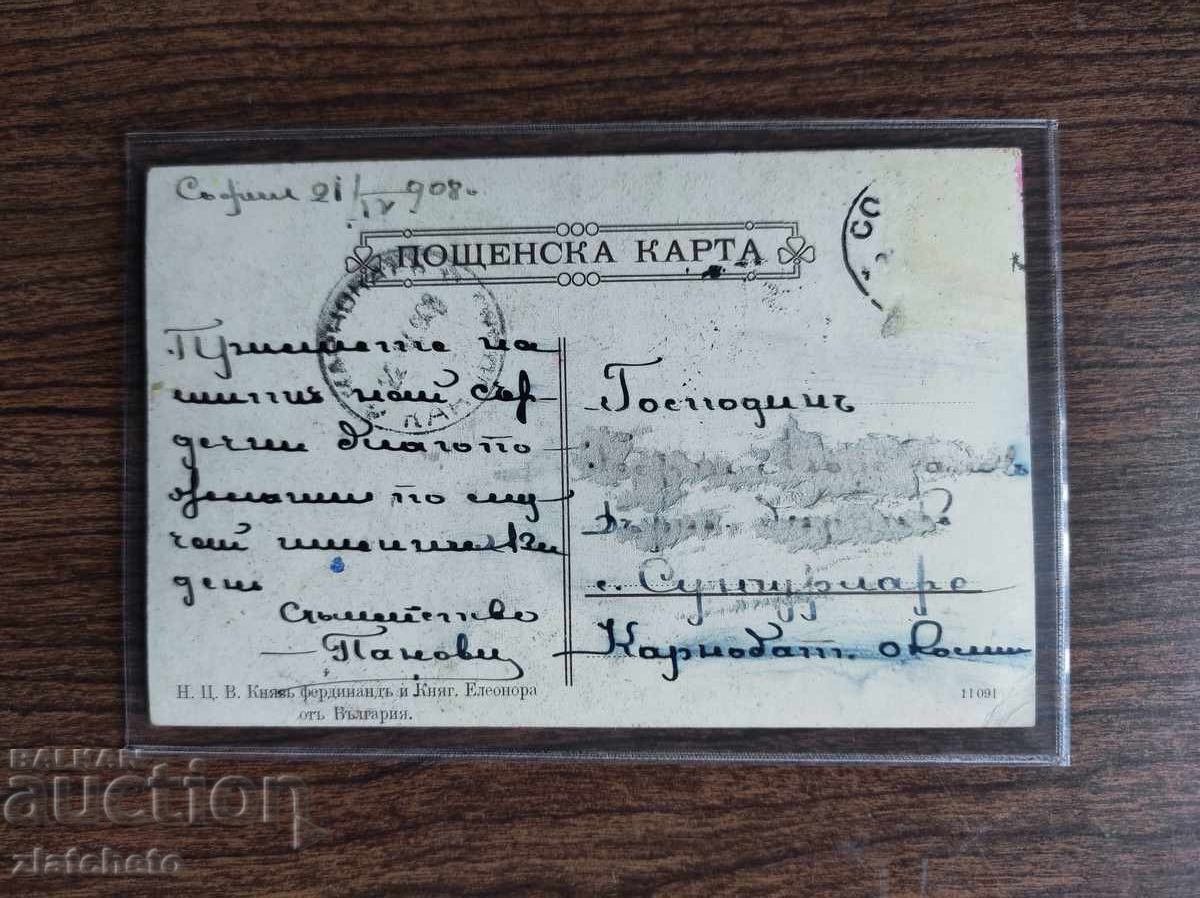 София 21/IV 908 г.
ПОЩЕНСКА КАРТА
Приемете на
шитѣ най сър-
дечни благопо
желания по слу
чай именния Ви
день
Съмейство
Панови
Господинъ
с. Сунгурларе
Карнобат. околия
Н. Ц. В. Князъ Фердинандъ и Княг. Елеонора
отъ България.
11091
BALKAN
auction
zlatcheto